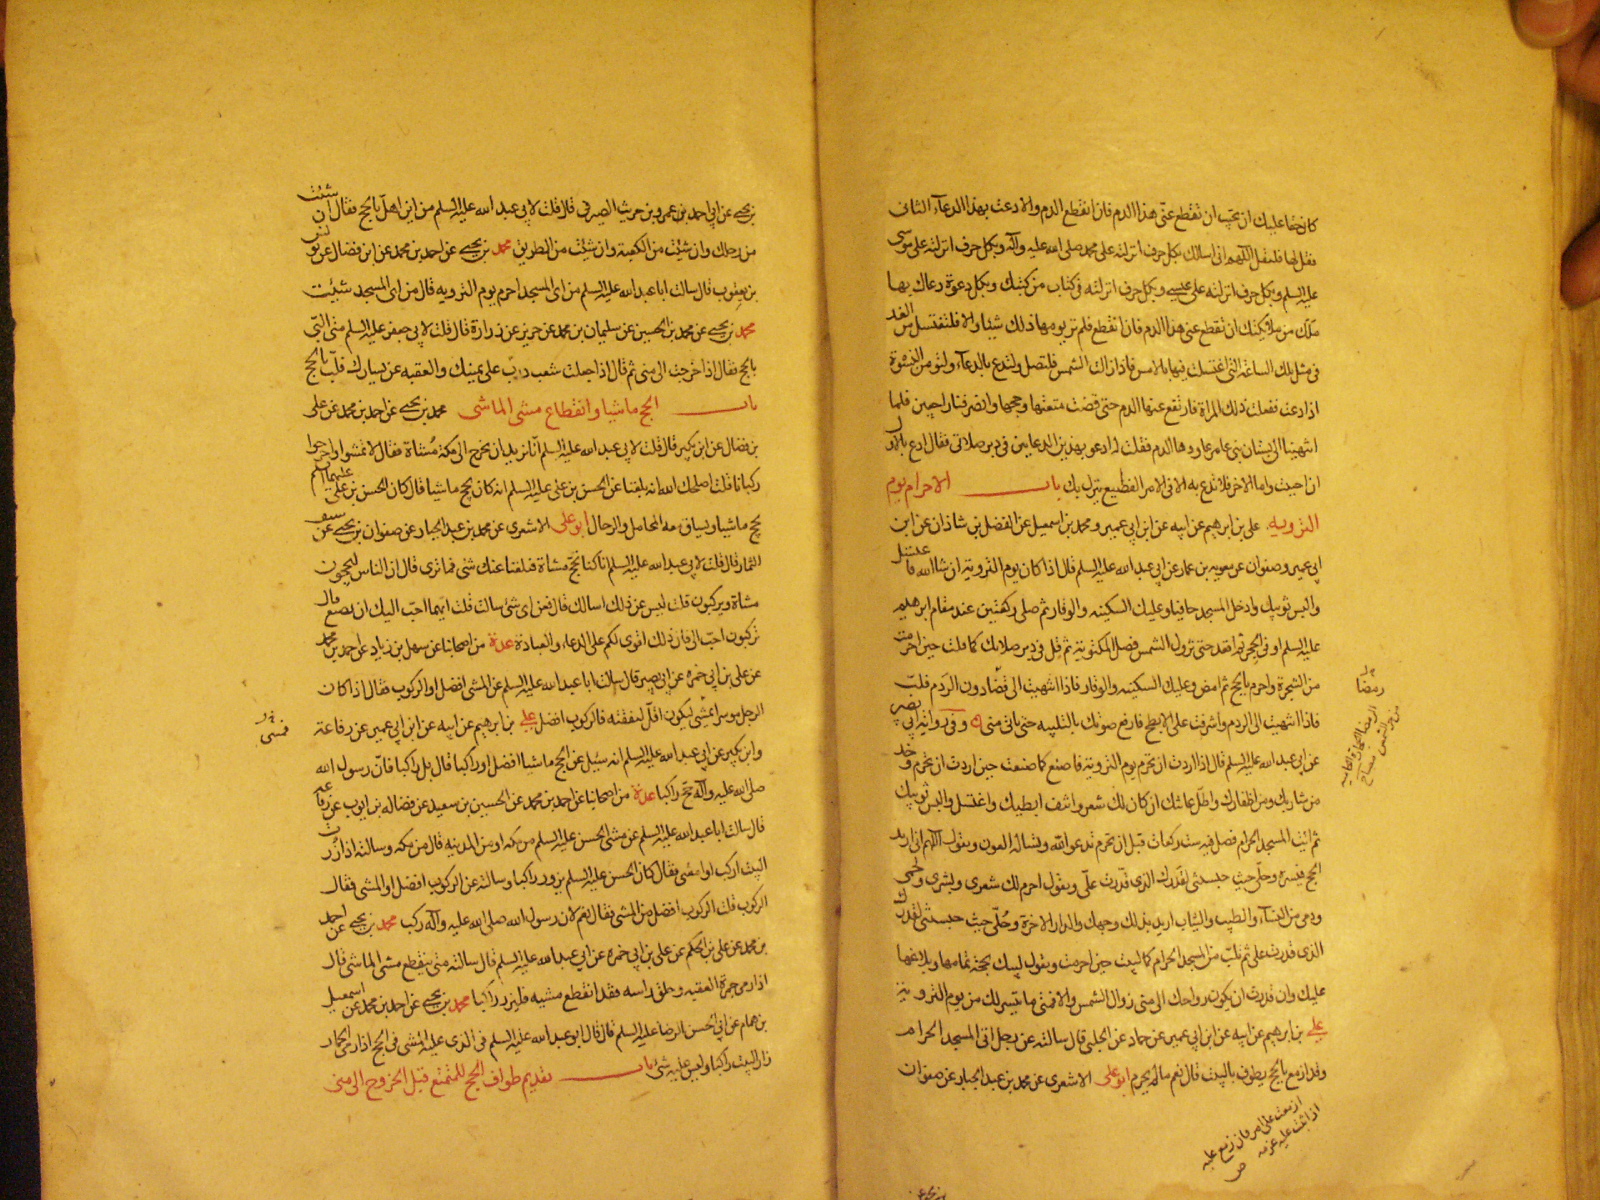 كان حقا عليك ان تحب ان تقطع عنى هذا الدم فان انقطع الدم والا دعت بهذا الدعآء الثانى
فقل لها فلتقل اللهم انى اسالك بكل حرف انزلته على محمد صلى الله عليه وآله وبكل حرف انزلته على موسى
عليه السلم وبكل حرف انزلته على عيسى وبكل حرف انزلته فى كتاب من كتبك وبكل دعوة دعاك بها
ملك من ملائكتك ان تقطع عنى هذا الدم فان انقطع فلم تر يومها ذلك شيئا والا فلتغتسل من الغد
فى مثل تلك الساعة التى اغتسلت فيها بالامس فاذا زالت الشمس فلتصل ولتدع بالدعآء وليؤمن النسوة
اذا دعت ففعلت ذلك المراة فارتفع عنها الدم حتى قضت متعتها وحجها وانصرفنا راجعين فلما
انتهينا الى بستان بنى عامر عاودها الدم فقلت له ادعو بهذين الدعايين فى دبر صلاتى فقال ادع بالاول
ان احببت واما الاخر فلا تدع به الا فى الامر الفظيع ينزل بك باب الاحرام يوم
التروية على بن ابرهيم عن ابيه عن ابن ابي عمير ومحمد بن اسمعيل عن الفضل بن شاذان عن ابن
ابي عمير وصفوان عن معوية بن عمار عن ابي عبد الله عليه السلم قال اذا كان يوم التروية ان شاالله فاغتسل
والبس ثوبيك وادخل المسجد حافيا وعليك السكينه والوقار ثم صلى ركعتين عند مقام ابرهيم
عليه السلم او فى الحجر ثم اقعد حتى تزول الشمس فصل المكتوبة ثم قل فى دبر صلاتك كما قلت حين احرمت
من الشجرة واحرم بالحج ثم امض وعليك السكينه والوقار فاذا انتهيت الى فضا دون الردم فلب
فاذا انتهيت الى الردم واشرفت على الابطح فارفع صوتك بالتلبيه حتى تاتى منى وفى رواية ابي بصير
عن ابي عبد الله عليه السلم قال اذا اردت ان تحرم يوم التروية فاصنع كما صنعت حين اردت ان تحرم وخذ
من شاربك ومن اظفارك واطل عانتك ان كان لك شعر وانتف ابطيك واغتسل والبس ثوبيك
ثم ائت المسجد الحرام فصل فيه ست ركعات قبل ان تحرم تدعو الله وتساله العون وتقول اللهم انى اريد
الحج فيسره وحلنى حيث حبستنى لقدرك الذى قدرت على وتقول احرم لك شعرى وبشرى ولحمى
ودمى من النسآء والطيب والثياب اريد بذلك وجهك والدار الاخرة وحلنى حيث حبستنى لقدرك
الذى قدرت على ثم تلب من المسجد الحرام كما لبيت حين احرمت وتقول لبيك بحجة تمامها وبلاغها
عليك وان قدرت ان يكون رواحك الى منى زوال الشمس والا فمتى ما تيسر لك من يوم التروية
على بن ابرهيم عن ابيه عن ابن ابي عمير عن حماد عن الحلبى قال سالته عن رجل اتى المسجد الحرام
وقد ازمع بالحج يطوف بالبيت قال نعم ما لم يحرم ابو على الاشعرى عن محمد بن عبد الجبار عن صفوان
ازمعت على امر فانا مزمع عليه
اذا ثبت عليه عزمه
بن يحيى عن ابي احمد بن عمرو بن حريث الصيرفى قال قلت لابي عبد الله عليه السلم من اين اهل بالحج فقال ان شئت
من رحلك وان شئت من الكعبة وان شئت من الطريق محمد بن يحيى عن احمد بن محمد عن ابن فضال عن يونس
بن يعقوب قال سالت ابا عبد الله عليه السلم من اى المسجد احرم يوم التروية قال من اى المسجد شئت
محمد بن يحيى عن محمد بن الحسين عن سليمان بن محمد عن حريز عن زرارة قال قلت لابي جعفر عليه السلم متى البى
بالحج فقال اذا خرجت الى منى ثم قال اذا جعلت شعب دب على يمينك والعقبه عن يسارك فلب بالحج
باب الحج ماشيا وانقطاع مشى الماشى محمد بن يحيى عن احمد بن محمد عن على
بن فضال عن ابن بكير قال قلت لابي عبد الله عليه السلم انا نريد ان نخرج الى مكة مشاة فقال لا تمشوا واخرجوا
ركبانا قلت اصلحك الله انه بلغنا عن الحسن بن على عليه السلم انه كان يحج ماشيا قال كان الحسن بن على عليهما السلم
يحج ماشيا ويساق معه المحامل والرحال ابو على الاشعرى عن محمد بن عبد الجبار عن صفوان بن يحيى عن سيف
التمار قال قلت لابي عبد الله عليه السلم انا كنا نحج مشاة فبلغنا عنك شئ فما ترى قال ان الناس ليحجون
مشاة ويركبون قلت ليس عن ذلك اسالك قال فعن اى شئ سالت قلت ايهما احب اليك ان نصنع قال
تركبون احب الى فان ذلك اقوى لكم على الدعاء والعبادة عدة من اصحابنا عن سهل بن زياد عن احمد بن محمد
عن على بن ابي حمزه عن ابي بصير قال سالت ابا عبد الله عليه السلم عن المشى افضل او الركوب فقال اذا كان
الرجل موسرا فمشى ليكون اقل لنفقته فالركوب افضل على بن ابرهيم عن ابيه عن ابن ابي عمير عن رفاعة
وابن بكير عن ابي عبد الله عليه السلم انه سئل عن الحج ماشيا افضل او راكبا قال بل راكبا فان رسول الله
صلى الله عليه وآله حج راكبا عدة من اصحابنا عن احمد بن محمد عن الحسين بن سعيد عن فضاله بن ايوب عن رفاعه
قال سالت ابا عبد الله عليه السلم عن مشى الحسن عليه السلم من مكه او من المدينه قال من مكه وسالته اذا زرت
البيت اركب او امشى فقال كان الحسن عليه السلم يزور راكبا وسالته عن الركوب افضل او المشى فقال
الركوب قلت الركوب افضل من المشى فقال نعم لان رسول الله صلى الله عليه وآله ركب محمد بن يحيى عن احمد
بن محمد عن على بن الحكم عن على بن ابي حمزه عن ابي عبد الله عليه السلم قال سالته متى ينقطع مشى الماشى قال
اذا رمى جمرة العقبه وحلق راسه فقد انقطع مشيه فليزر راكبا محمد بن يحيى عن احمد بن محمد عن اسمعيل
بن همام عن ابي الحسن الرضا عليه السلم قال قال ابو عبد الله عليه السلم فى الذى عليه المشى فى الحج اذا رمى الجمار
زار البيت راكبا وليس عليه شئ باب تقديم طواف الحج للمتمتع قبل الخروج الى منى